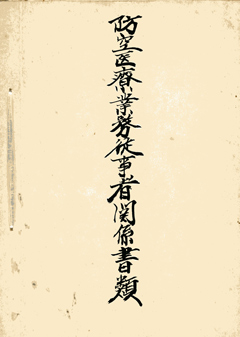 防空医療業務従事者関係書類